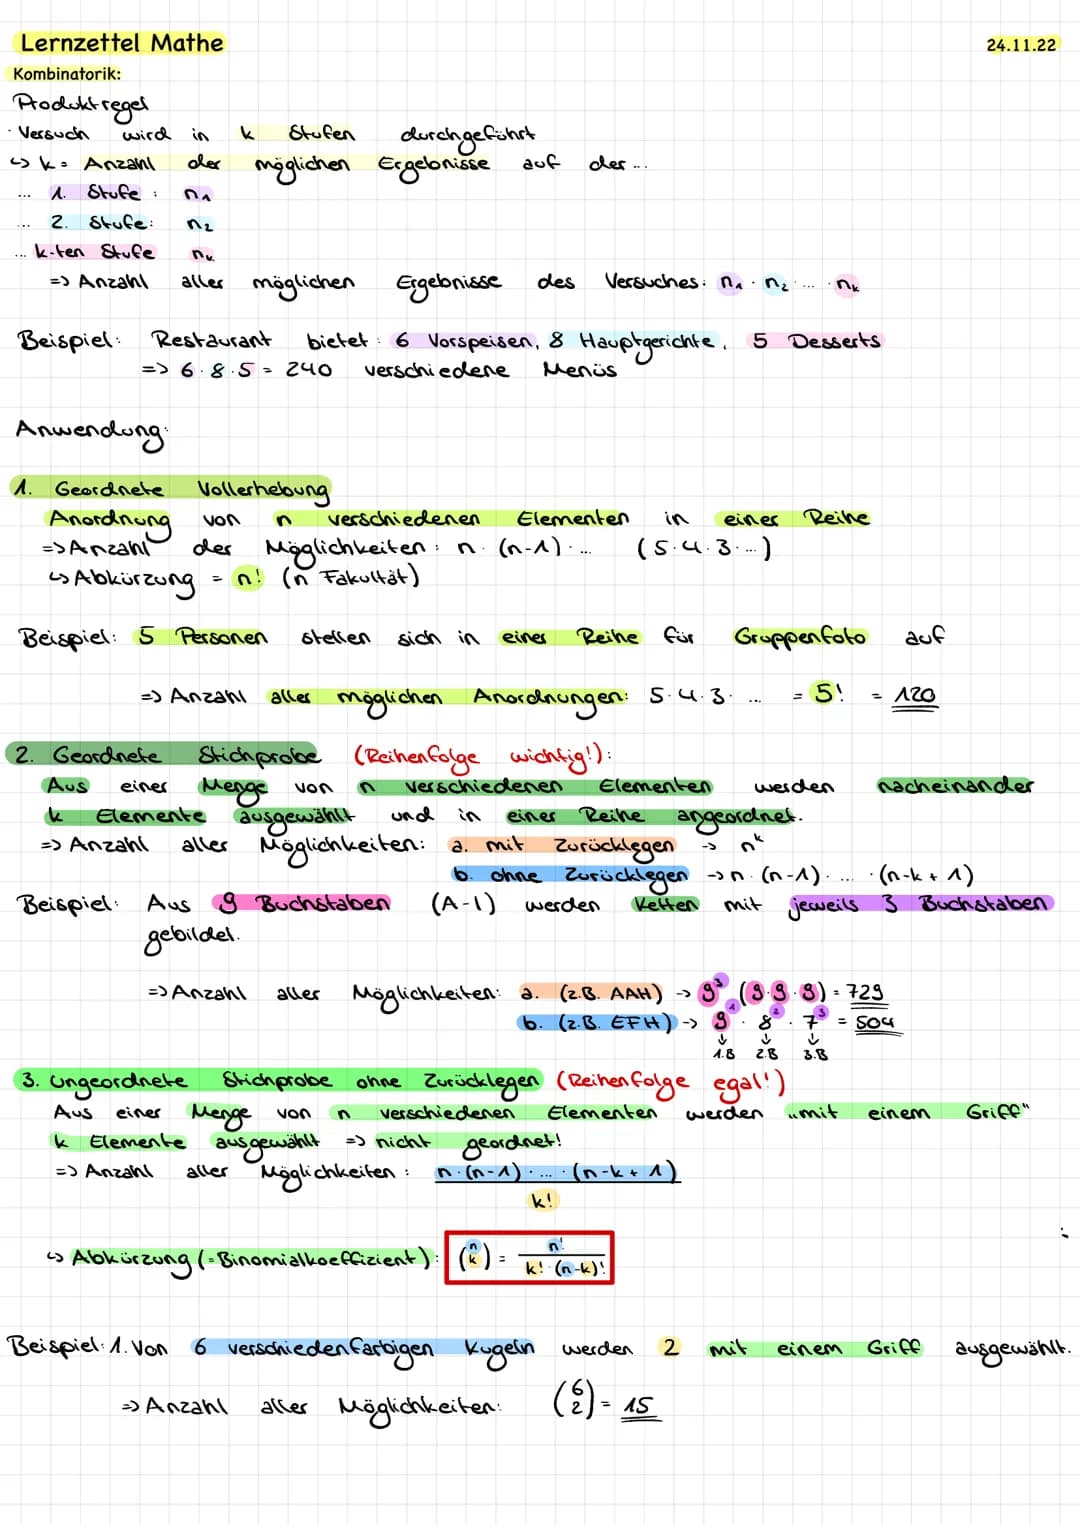 Lernzettel Mathe
24.11.22
Kombinatorik:
Produktregel
· Versuch wird in k Stufen durchgeführt
↳ k = Anzahl der möglichen Ergebnisse auf der ...
... 1. Stufe : n₁
... 2. Stufe: n₂
... k-ten Stufe nₖ
=> Anzahl aller möglichen Ergebnisse des Versuches: n₁ · n₂ · ... · nₖ
Beispiel: Restaurant bietet : 6 Vorspeisen, 8 Hauptgerichte, 5 Desserts
=> 6 · 8 · 5 = 240 verschiedene Menüs
Anwendung:
1. Geordnete Vollerhebung
Anordnung von n verschiedenen Elementen in einer Reihe
=> Anzahl der Möglichkeiten : n · (n-1) · ... (5 · 4 · 3 · ...)
↳ Abkürzung = n! (n Fakultät)
Beispiel: 5 Personen stellen sich in einer Reihe für Gruppenfoto auf
=> Anzahl aller möglichen Anordnungen: 5 · 4 · 3 · ... = 5! = 120
2. Geordnete Stichprobe (Reihenfolge wichtig!):
Aus einer Menge von n verschiedenen Elementen werden nacheinander
k Elemente ausgewählt und in einer Reihe angeordnet.
=> Anzahl aller Möglichkeiten: a. mit Zurücklegen -> nᵏ
b. ohne Zurücklegen -> n · (n-1) · ... · (n-k+1)
Beispiel: Aus 9 Buchstaben (A-I) werden Ketten mit jeweils 3 Buchstaben
gebildet.
=> Anzahl aller Möglichkeiten: a. (z.B. AAH) -> 9³ (9·9·9) = 729
b. (z.B. EFH) -> 9¹ · 8² · 7³ = 504
↓ ↓ ↓
1.B 2.B 3.B
3. Ungeordnete Stichprobe ohne Zurücklegen (Reihenfolge egal!)
Aus einer Menge von n verschiedenen Elementen werden „mit einem Griff"
k Elemente ausgewählt => nicht geordnet!
=> Anzahl aller Möglichkeiten : n · (n-1) · ... · (n-k+1)
k!
↳ Abkürzung (= Binomialkoeffizient): (n k) = n! / k! · (n-k)!
Beispiel: 1. Von 6 verschiedenfarbigen Kugeln werden 2 mit einem Griff ausgewählt.
=> Anzahl aller Möglichkeiten: (6 2) = 15